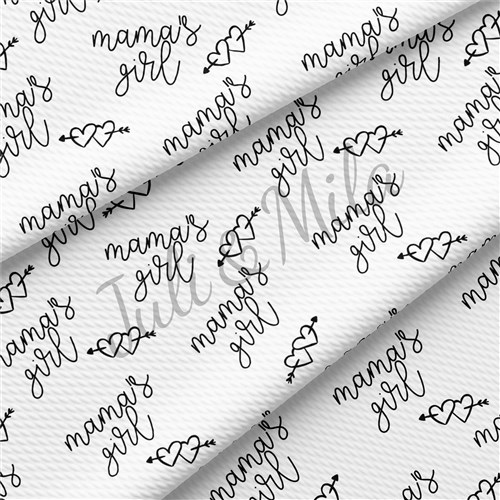 mama's
girl
mama's
girl
mama's
girl
mama's
girl
mama's
girl
mama's
girl
mama's
girl
mama's
girl
mama's
girl
mama's
girl
mama's
girl
mama's
girl
mama's
girl
Juli & Milo